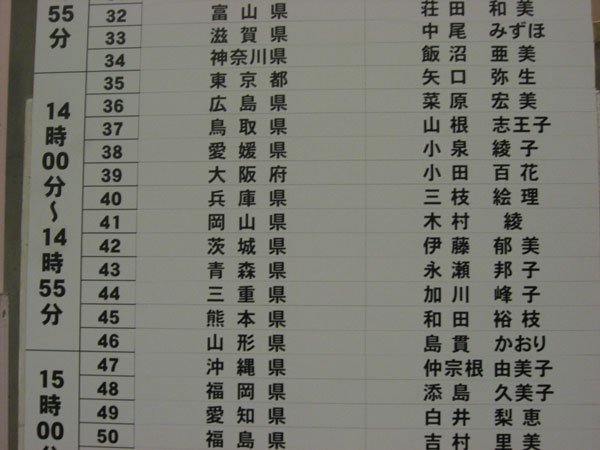 55分
32 富山県 荘田 和美
33 滋賀県 中尾 みずほ
34 神奈川県 飯沼 亜美
35 東京都 矢口 弥生
14時00分～14時55分
36 広島県 菜原 宏美
37 鳥取県 山根 志王子
38 愛媛県 小泉 綾子
39 大阪府 小田 百花
40 兵庫県 三枝 絵理
41 岡山県 木村 綾
42 茨城県 伊藤 郁美
43 青森県 永瀬 邦子
44 三重県 加川 峰子
45 熊本県 和田 裕枝
46 山形県 島貫 かおり
15時00分
47 沖縄県 仲宗根 由美子
48 福岡県 添島 久美子
49 愛知県 白井 梨恵
50 福島県 吉村 里美